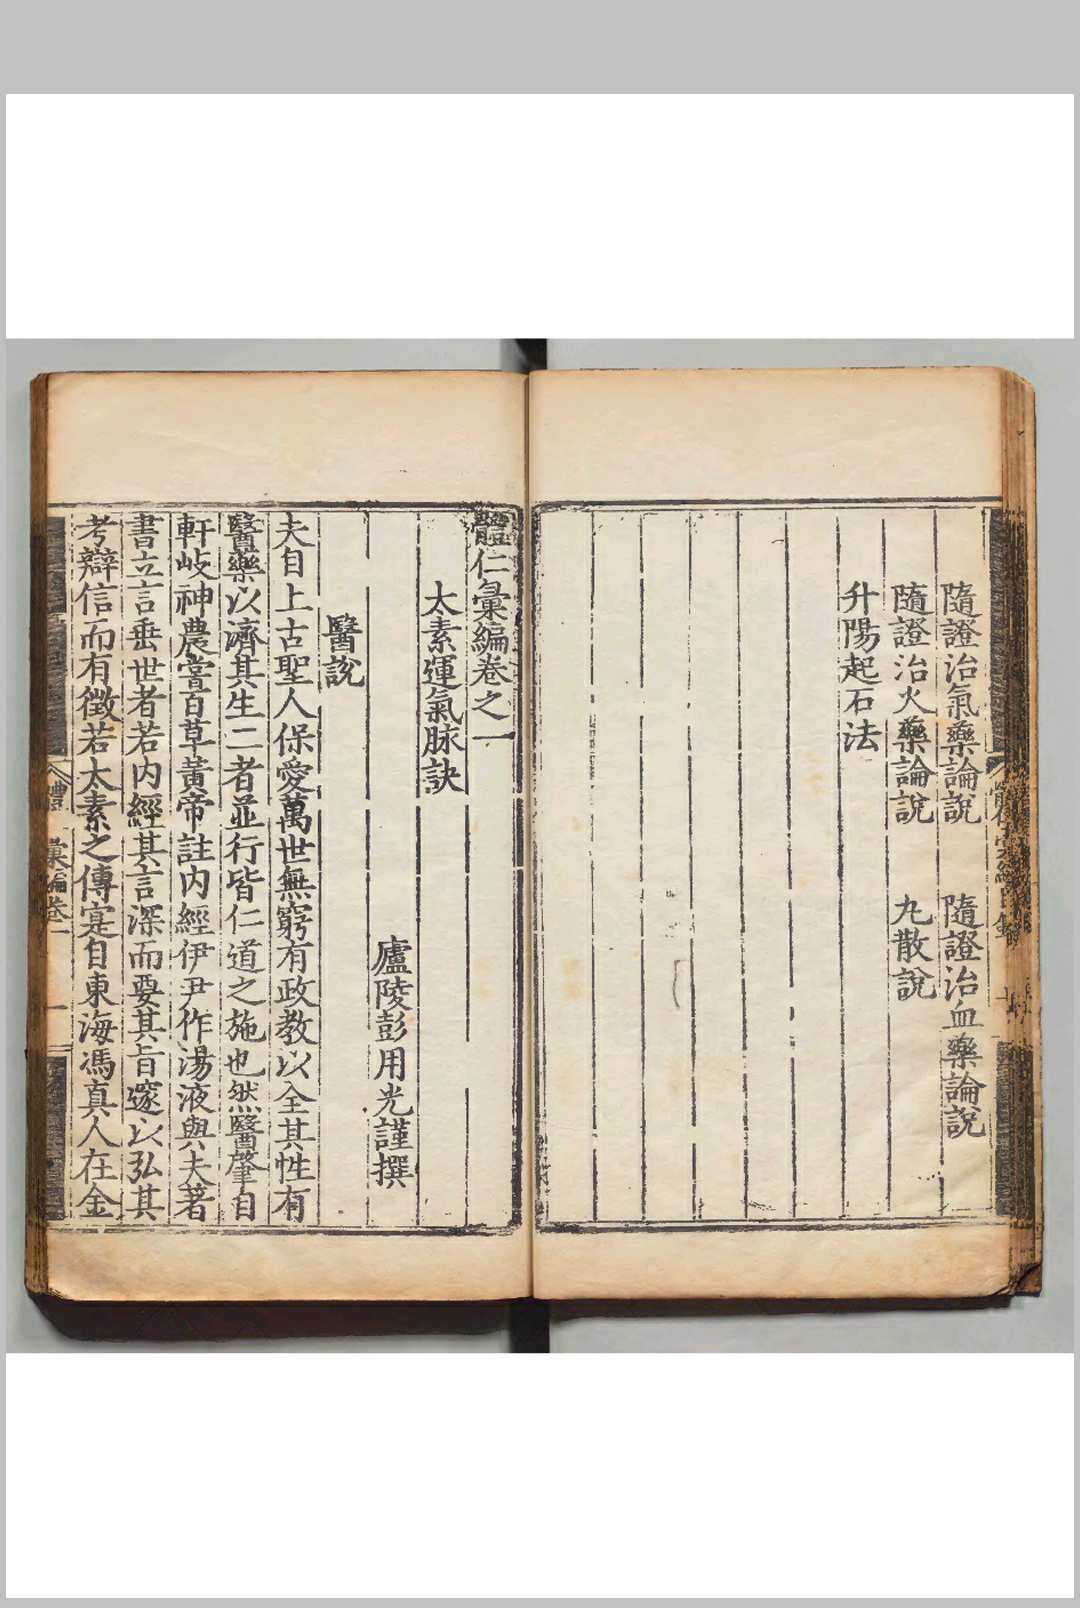 隨證治氣藥論說　隨證治血藥論說
隨證治火藥論說　九散說
升陽起石法
體仁彙編卷之一
太素運氣脉訣
廬陵彭用光謹撰
醫說
夫自上古聖人保愛萬世無窮有政教以全其性有
醫藥以濟其生二者並行皆仁道之施也然醫肇自
軒岐神農嘗百草黃帝註內經伊尹作湯液與夫著
書立言垂世者若內經其言深而要其旨邃以弘其
考辯信而有徵若太素之傳寔自東海馮真人在金
彙編卷一
一